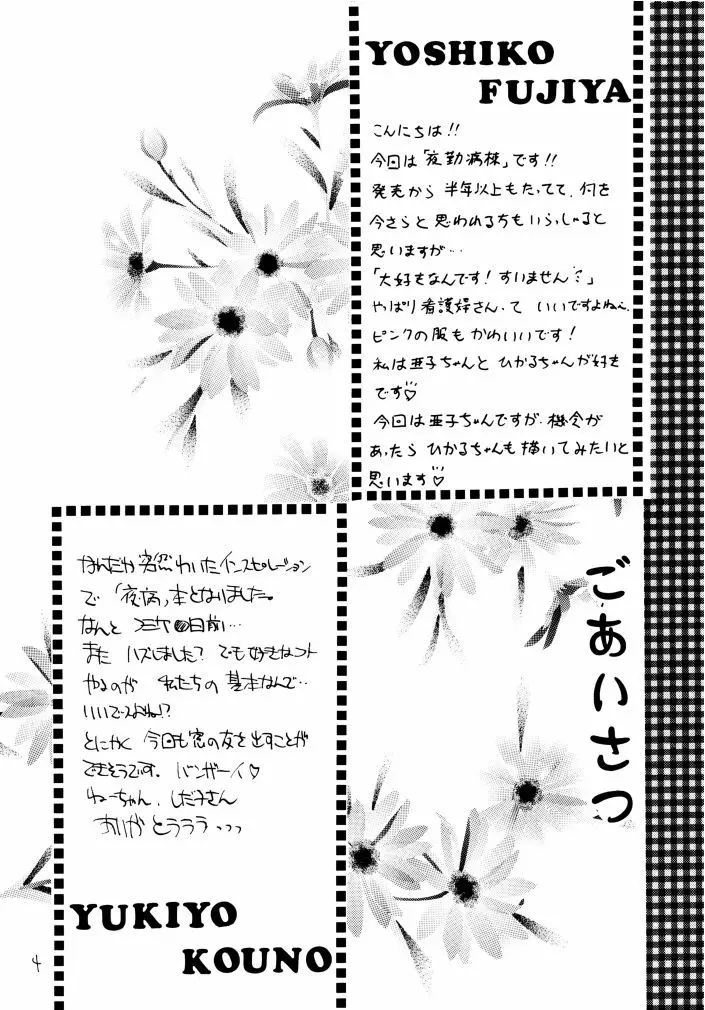 YOSHIKO
FUJIYA
こんにちは!!
今回は「夜勤病棟」です!!
発売から 半年以上もたってて、何を
今さらと思われる方もいらっしゃると
思いますが…
「大好きなんです!すいません
やっぱり看護婦さんって いいですよねぇ
ピンクの服も かわいいです!
私は亜子ちゃんと ひかるちゃんが好き
です♡
今回は亜子ちゃんですが、機会が
あったら ひかるちゃんも描いてみたいと
思います♡
ごあいさつ
なんだか突然わいたインスピレーション
で「夜病」本となりました。
なんと コミケ 日前…
また ハズしました? でも好きなコト
やるのが 私たちの基本なんで…
いいですよね!?
とにかく 今回も窓の友を出すことが
できそうです。バンザーイ♡
ねーちゃん、しだ子さん
ありがとうううう…
YUKIYO
KOUNO
4